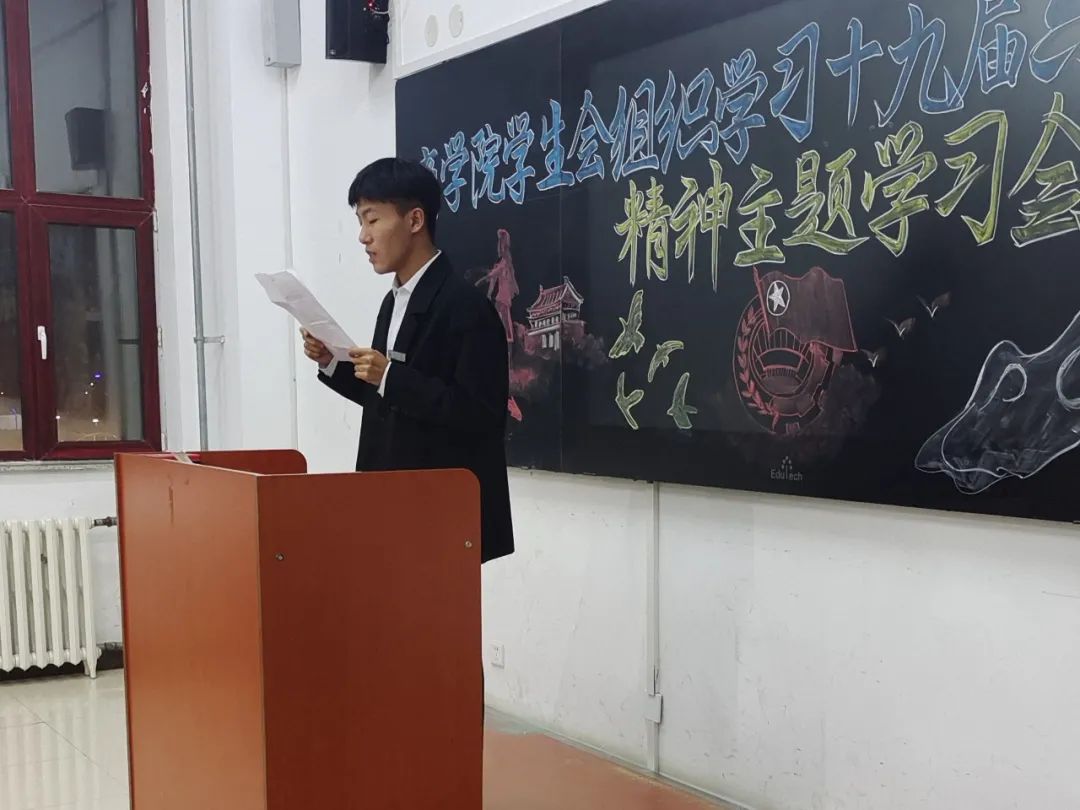 学院学生会组织学习十九届六
精神主题学习会
EduTech